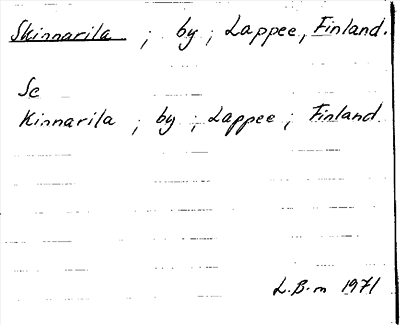 Skinnarila ; by ; Lappee, Finland.
Se
Kinnarila ; by ; Lappee ; Finland.
L.B-m 1971